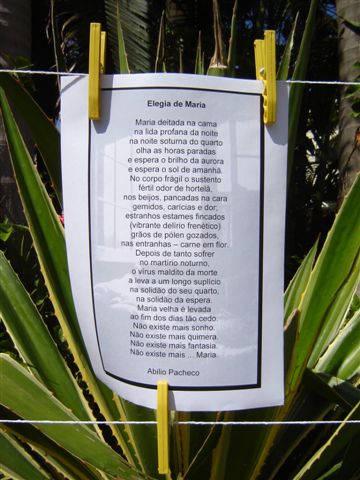 Elegia de Maria
Maria deitada na cama
na lida profana da noite
na noite soturna do quarto
olha as horas paradas
e espera o brilho da aurora
e espera o sol de amanhã.
No corpo frágil o sustento
fértil odor de hortelã,
nos beijos, pancadas na cara
gemidos, carícias e dor;
estranhos estames fincados
(vibrante delírio frenético)
grãos de pólen gozados,
nas entranhas – carne em flor.
Depois de tanto sofrer
no martírio noturno,
o vírus maldito da morte
a leva a um longo suplício
na solidão do seu quarto,
na solidão da espera.
Maria velha é levada
ao fim dos dias tão cedo.
Não existe mais sonho.
Não existe mais quimera.
Não existe mais fantasia.
Não existe mais ... Maria.
Abílio Pacheco